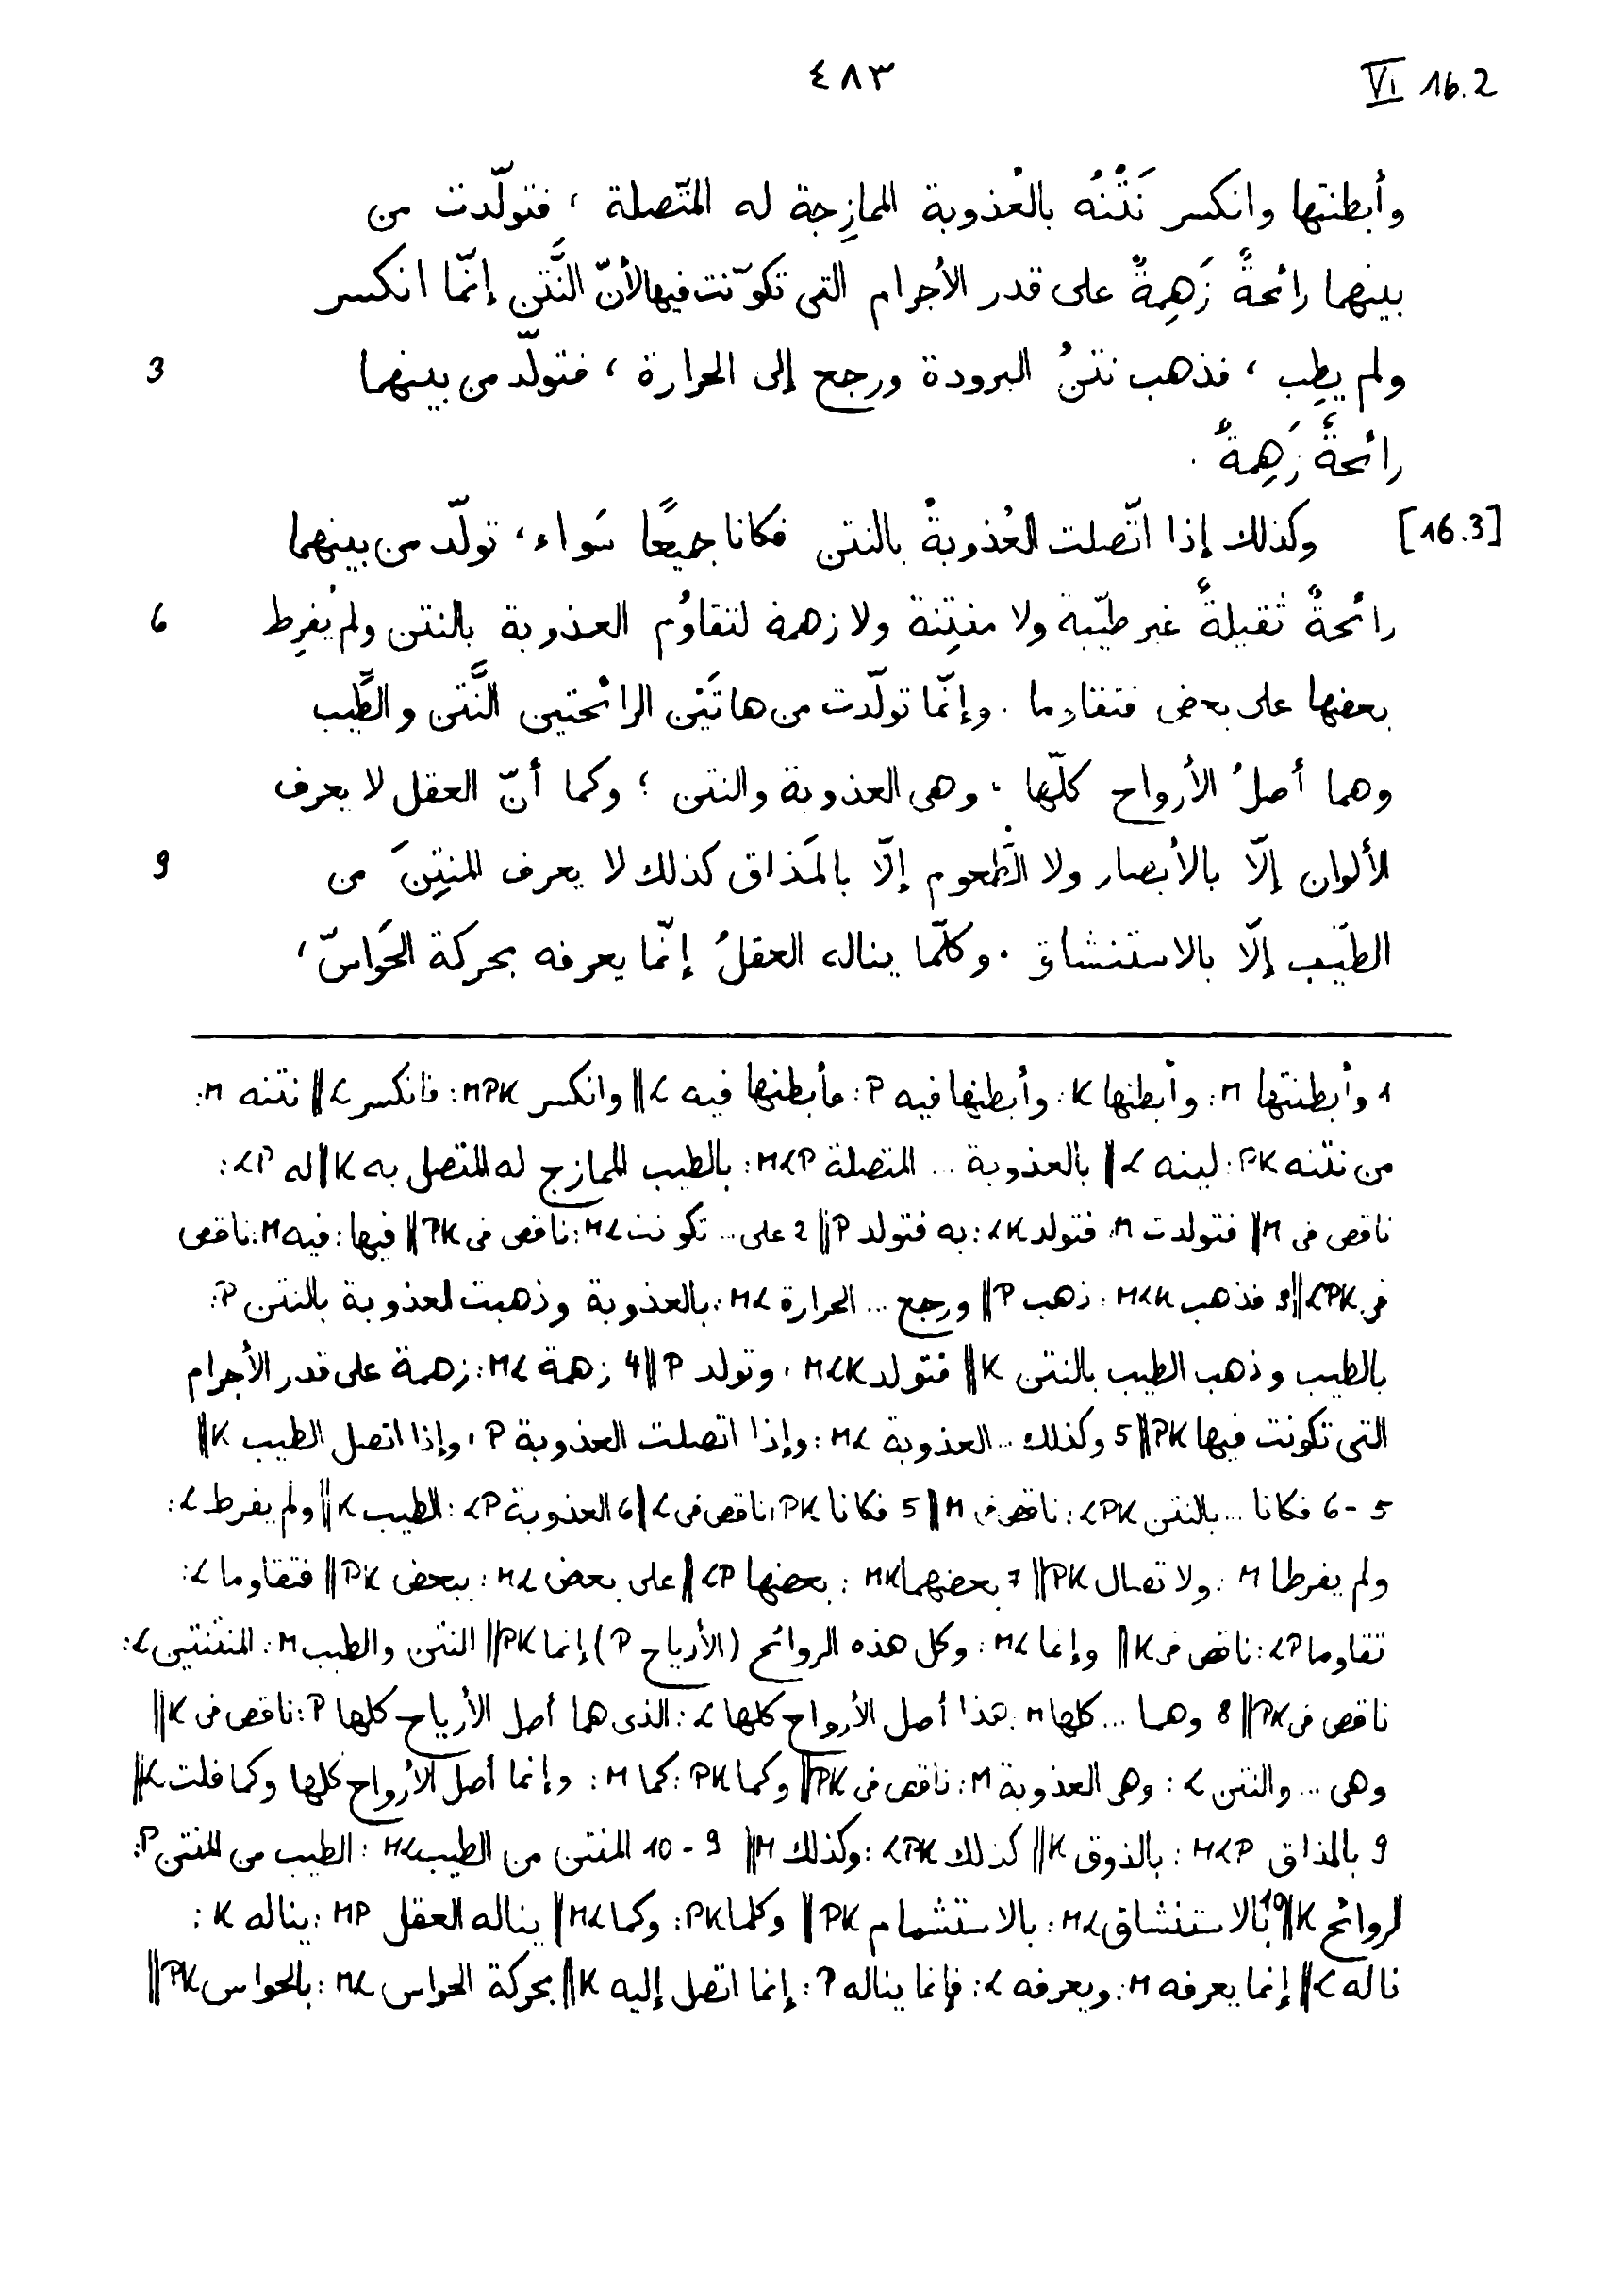 ٤٨٣ VI 16.2
وأبطنتها وانكسر نَتْنُه بالعُذوبة الممازِجة له المتّصلة ، فتولّدت من
بينهما رائحةٌ زَهِمةٌ على قدر الأجرام التى تكوّنت فيها لأنّ النَّتْن إنّما انكسر
ولم يطِب ، فذهب نتنُ البرودة ورجع إلى الحرارة ، فتولّد من بينهما 3
رائحةٌ زَهِمةٌ .
[16.3] وكذلك إذا اتّصلت العُذوبةُ بالنتن فكانا جميعًا سَواء ، تولّد من بينهما
رائحةٌ ثقيلةٌ غير طيّبة ولا منتِنة ولا زهمة لتقاوُم العذوبة بالنتن ولم يُفرِط 6
بعضها على بعض فتقاوما . وإنّما تولّدت من هاتَيْن الرائحتين النَّتْن والطِّيب
وهما أصلُ الأرواح كلّها . وهى العذوبة والنتن ؛ وكما أنّ العقل لا يعرف
الألوان إلّا بالأبصار ولا الطُّعوم إلّا بالمَذاق كذلك لا يعرف المنتِنَ من 9
الطيّب إلّا بالاستنشاق . وكلّما يناله العقلُ إنّما يعرفه بحركة الحَواسّ ،
1 وأبطنتها M : وأبطنها K : وأبطنها فيه P : فأبطنها فيه L || وانكسر MPK : فانكسر L || نتنه M :
من نتنه PK : لينه L || بالعذوبة ... المتصلة MLP : بالطيب الممازج له المتصل به K || له LP :
ناقص فى M || فتولدت M : فتولد LK : به فتولد P || 2 على ... تكونت ML : ناقص فى PK || فيها : فيه M : ناقص
فى LPK || 3 فذهب MLK : ذهب P || ورجع ... الحرارة ML : بالعذوبة وذهبت العذوبة بالنتن P :
بالطيب وذهب الطيب بالنتن K || فتولد MLK : وتولد P || 4 زهمة ML : زهمة على قدر الأجرام
التى تكونت فيها PK || 5 وكذلك ... العذوبة ML : وإذا اتصلت العذوبة P : وإذا اتصل الطيب K ||
5 - 6 فكانا ... بالنتن LPK : ناقص فى M || 5 فكانا PK : ناقص فى L || 6 العذوبة LP : الطيب K || ولم يفرط L :
ولم يفرطا M : ولا تصال PK || 7 بعضهما MK : بعضها LP || على بعض ML : ببعض PK || فتقاوما L :
تقاوما LP : ناقص فى K || وإنما ML : وكل هذه الروائح (الأرياح P) إنما PK || النتن والطيب M : المنتنتين L :
ناقص فى PK || 8 وهما ... كلها M : هذا أصل الأرواح كلها L : الذى هما أصل الأرياح كلها P : ناقص فى K ||
وهى ... والنتن L : وهى العذوبة M : ناقص فى PK || وكما PK : كما M : وإنما أصل الأرواح كلها وكما قلت L ||
9 بالمذاق MLP : بالذوق K || كذلك LPK : وكذلك M || 9 - 10 المنتن من الطيب ML : الطيب من المنتن P :
الروائح K || 10 بالاستنشاق ML : بالاستشمام PK || وكلما PK : وكما ML || يناله العقل MP : يناله K :
ناله L || إنما يعرفه M : ويعرفه L : فإنما يناله P : إنما اتصل إليه K || بحركة الحواس ML : بالحواس PK ||